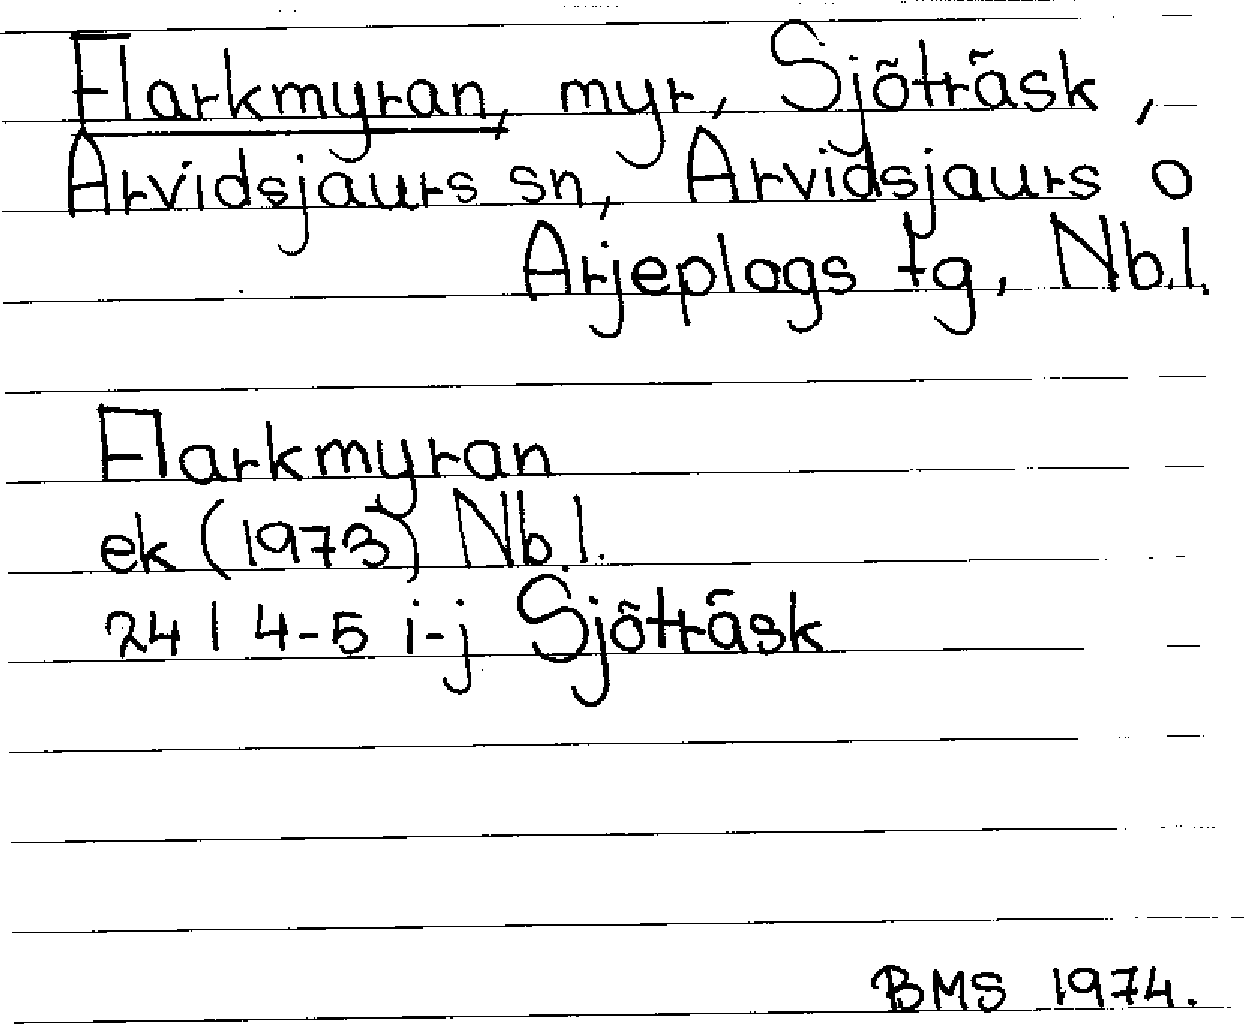 Flarkmyran, myr, Sjöträsk,
Arvidsjaurs sn, Arvidsjaurs o
Arjeplogs tg, Nb.l.
Flarkmyran
ek (1973) Nb l.
24 I 4-5 i-j Sjöträsk
BMS 1974.